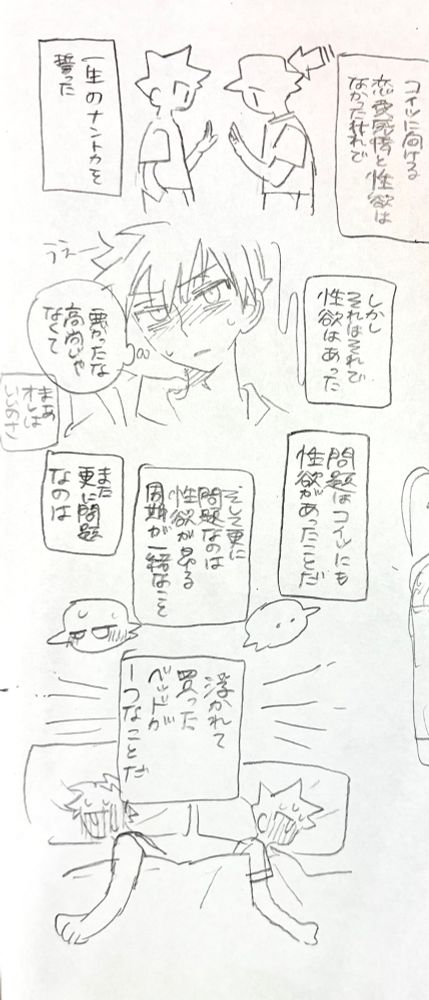 コイツに向ける
恋愛感情と性欲は
なかった。それで
一生のナントカを
誓った
しかし
それはそれで
性欲はあった
うえ〜
悪かったな
高尚じゃ
なくて
まあ
オレは
いいのさ
問題はコイツにも
性欲があったことだ
そして更に
問題なのは
性欲が昂る
周期が一緒なこと
また
更に問題
なのは
浮かれて
買った
ベッドが
一つなことだ